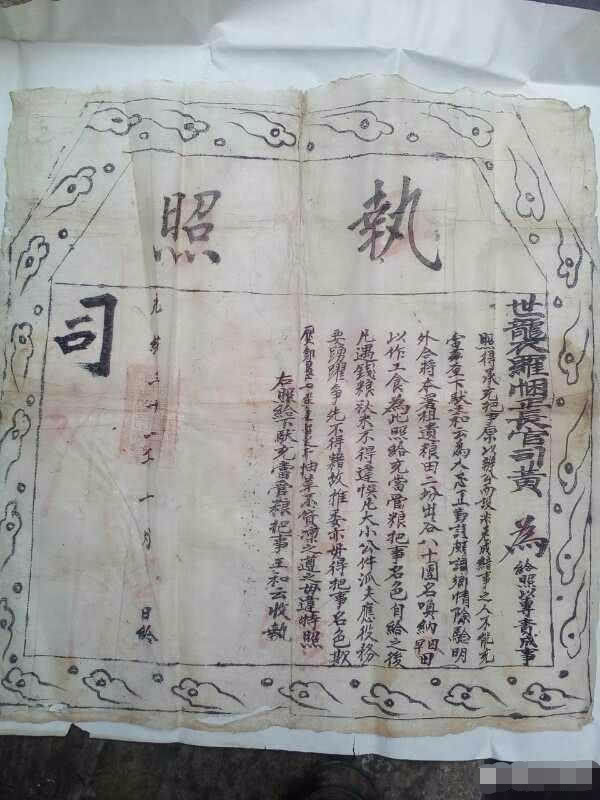 執照
世襲羅悃正長官司黃 為
給照以專責成事
照得承充把事原以辦公而設非老成結事之人不能充
當 查下馱王和云為人忠正勤謹頗諳鄉情除驗明
外合將本署祖遺粮田二份出谷八十團名喚納田
以作工食為此照給充當管粮把事名色自給之後
凡遇錢粮 不得違悞凡大小公件派夫應役務
要踴躍爭先不得藉故推委亦毋得把事名色欺
壓 革不貸凛之遵之毋違特照
右照給下馱充當管粮把事王和云收執
光 三十一年十一月 日給
司